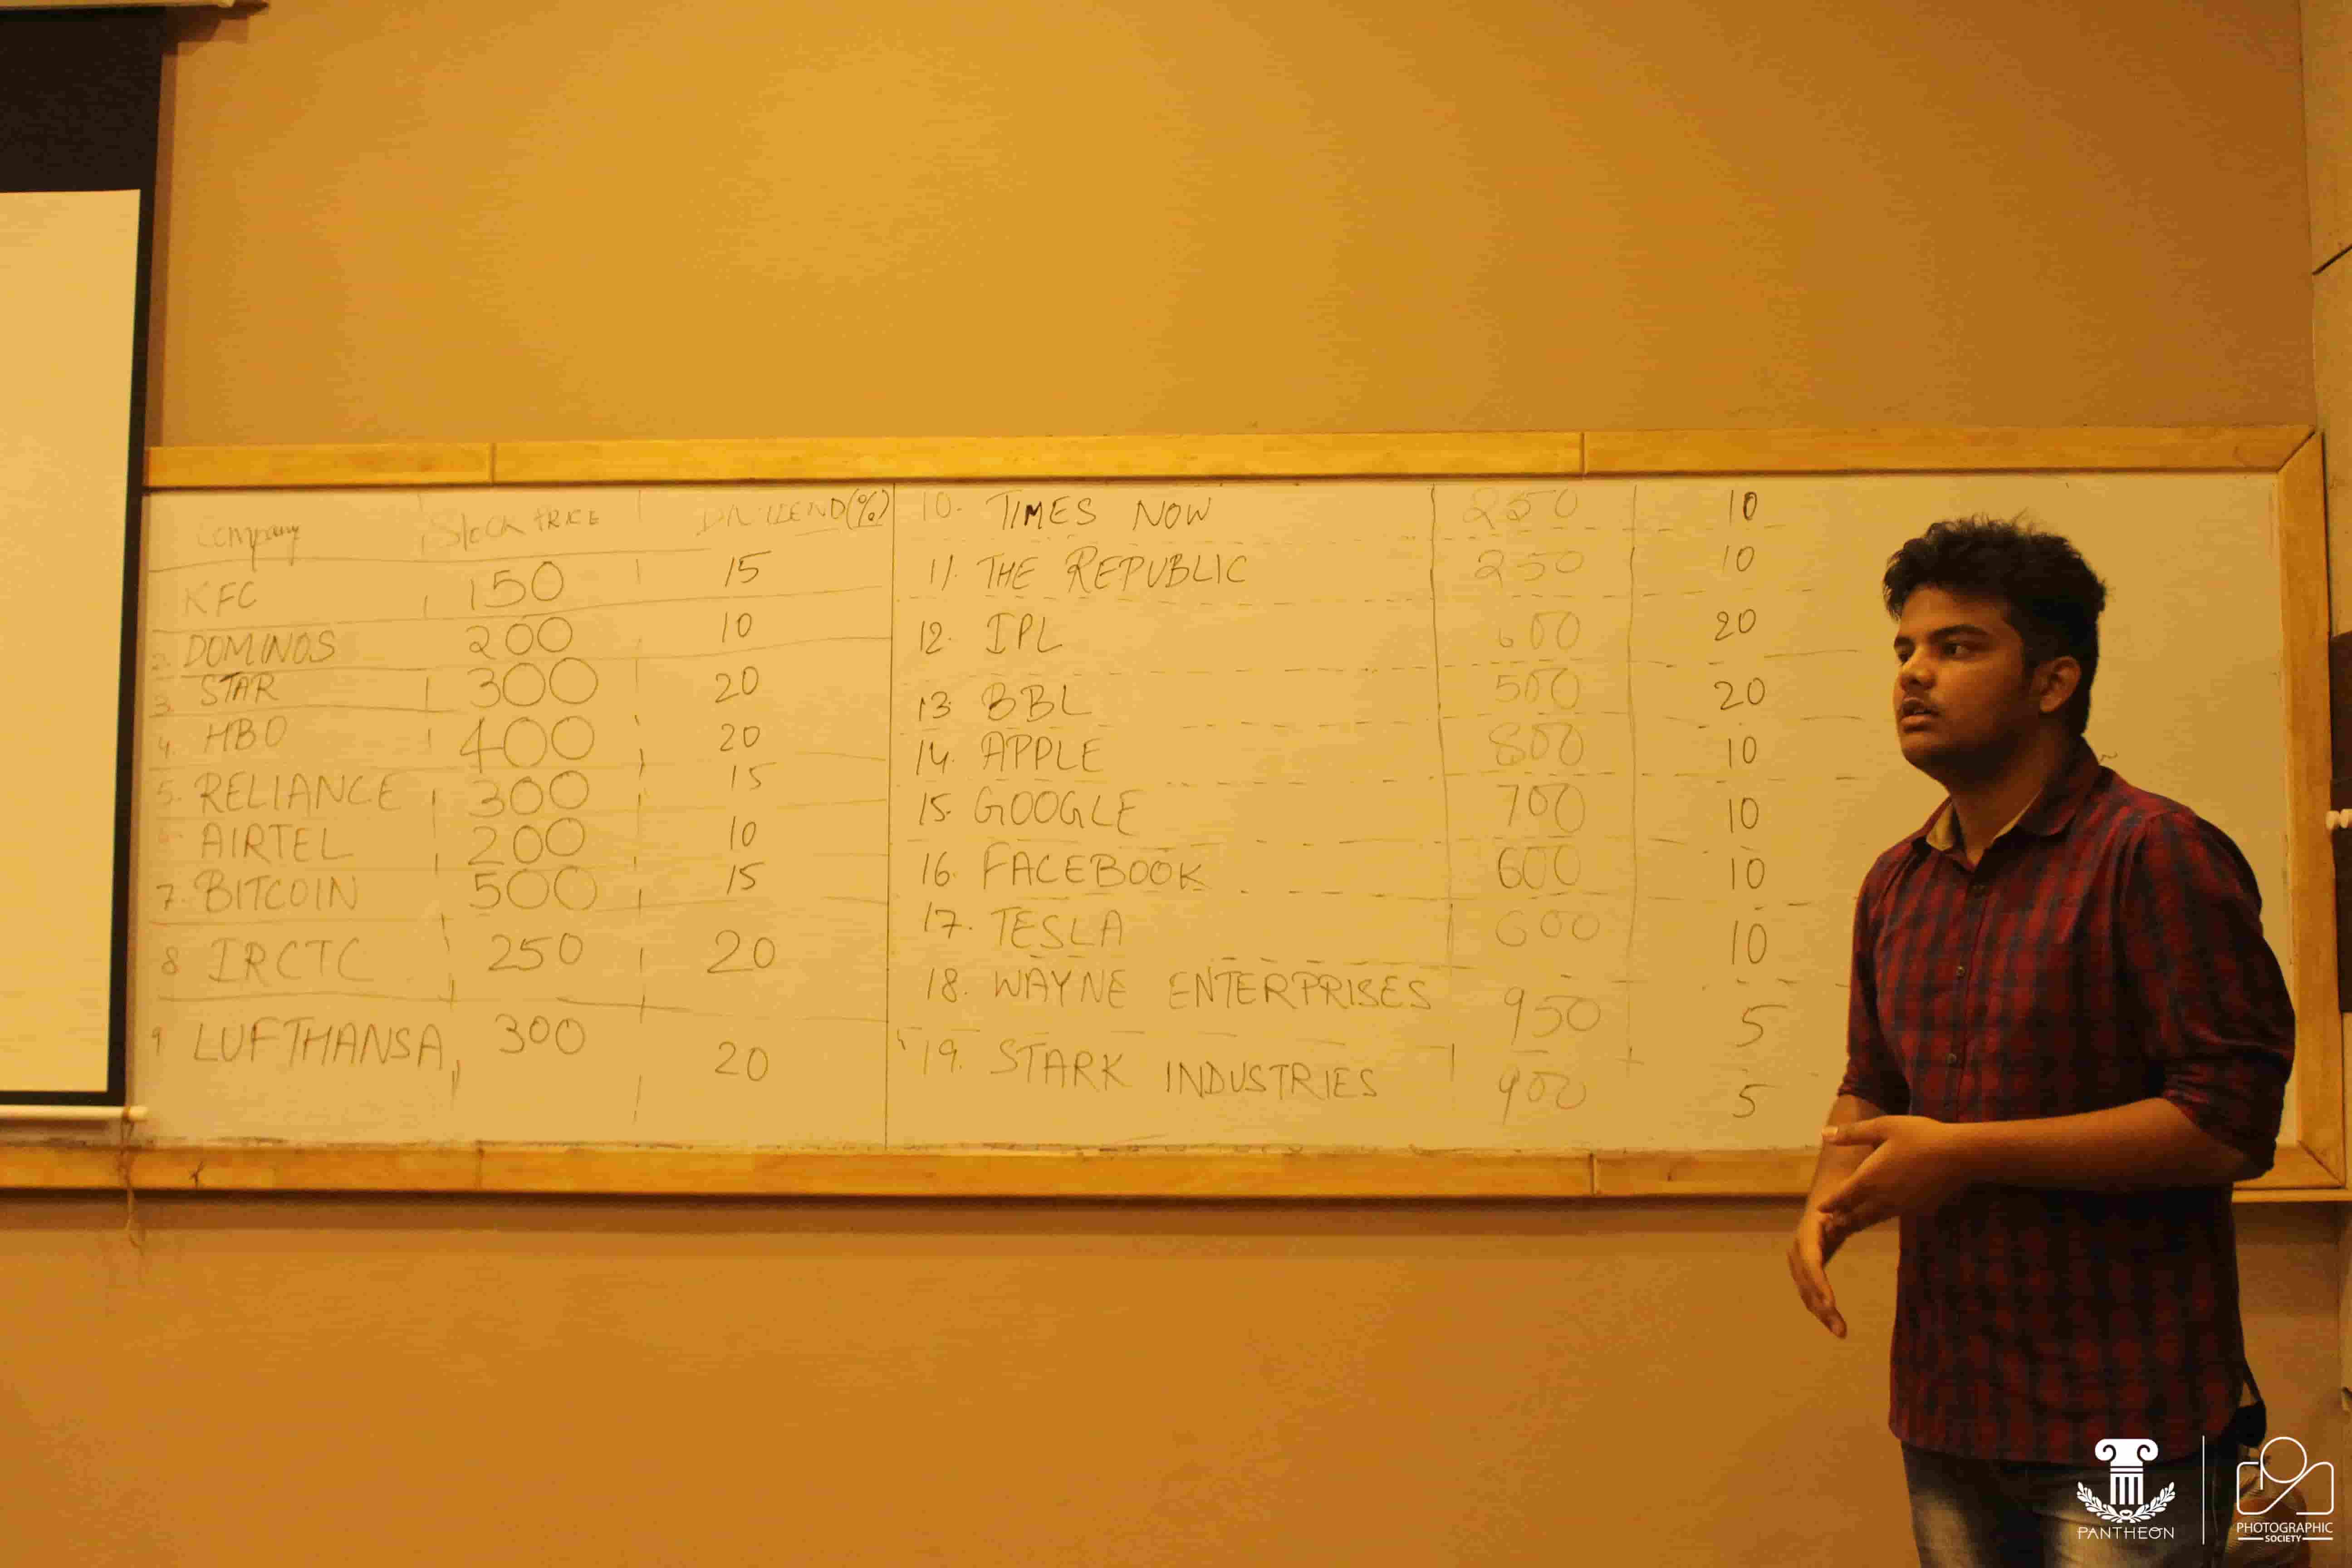 Company Stock PRICE DIVIDEND(%)
KFC 150 15
2. DOMINOS 200 10
3. STAR 300 20
4. HBO 400 20
5. RELIANCE 300 15
6. AIRTEL 200 10
7. BITCOIN 500 15
8 IRCTC 250 20
9 LUFTHANSA 300 20
10. TIMES NOW 250 10
11. THE REPUBLIC 250 10
12. IPL 600 20
13. BBL 500 20
14. APPLE 800 10
15. GOOGLE 700 10
16. FACEBOOK 600 10
17. TESLA 600 10
18. WAYNE ENTERPRISES 950 5
19. STARK INDUSTRIES 900 5
PANTHEON
PHOTOGRAPHIC
SOCIETY